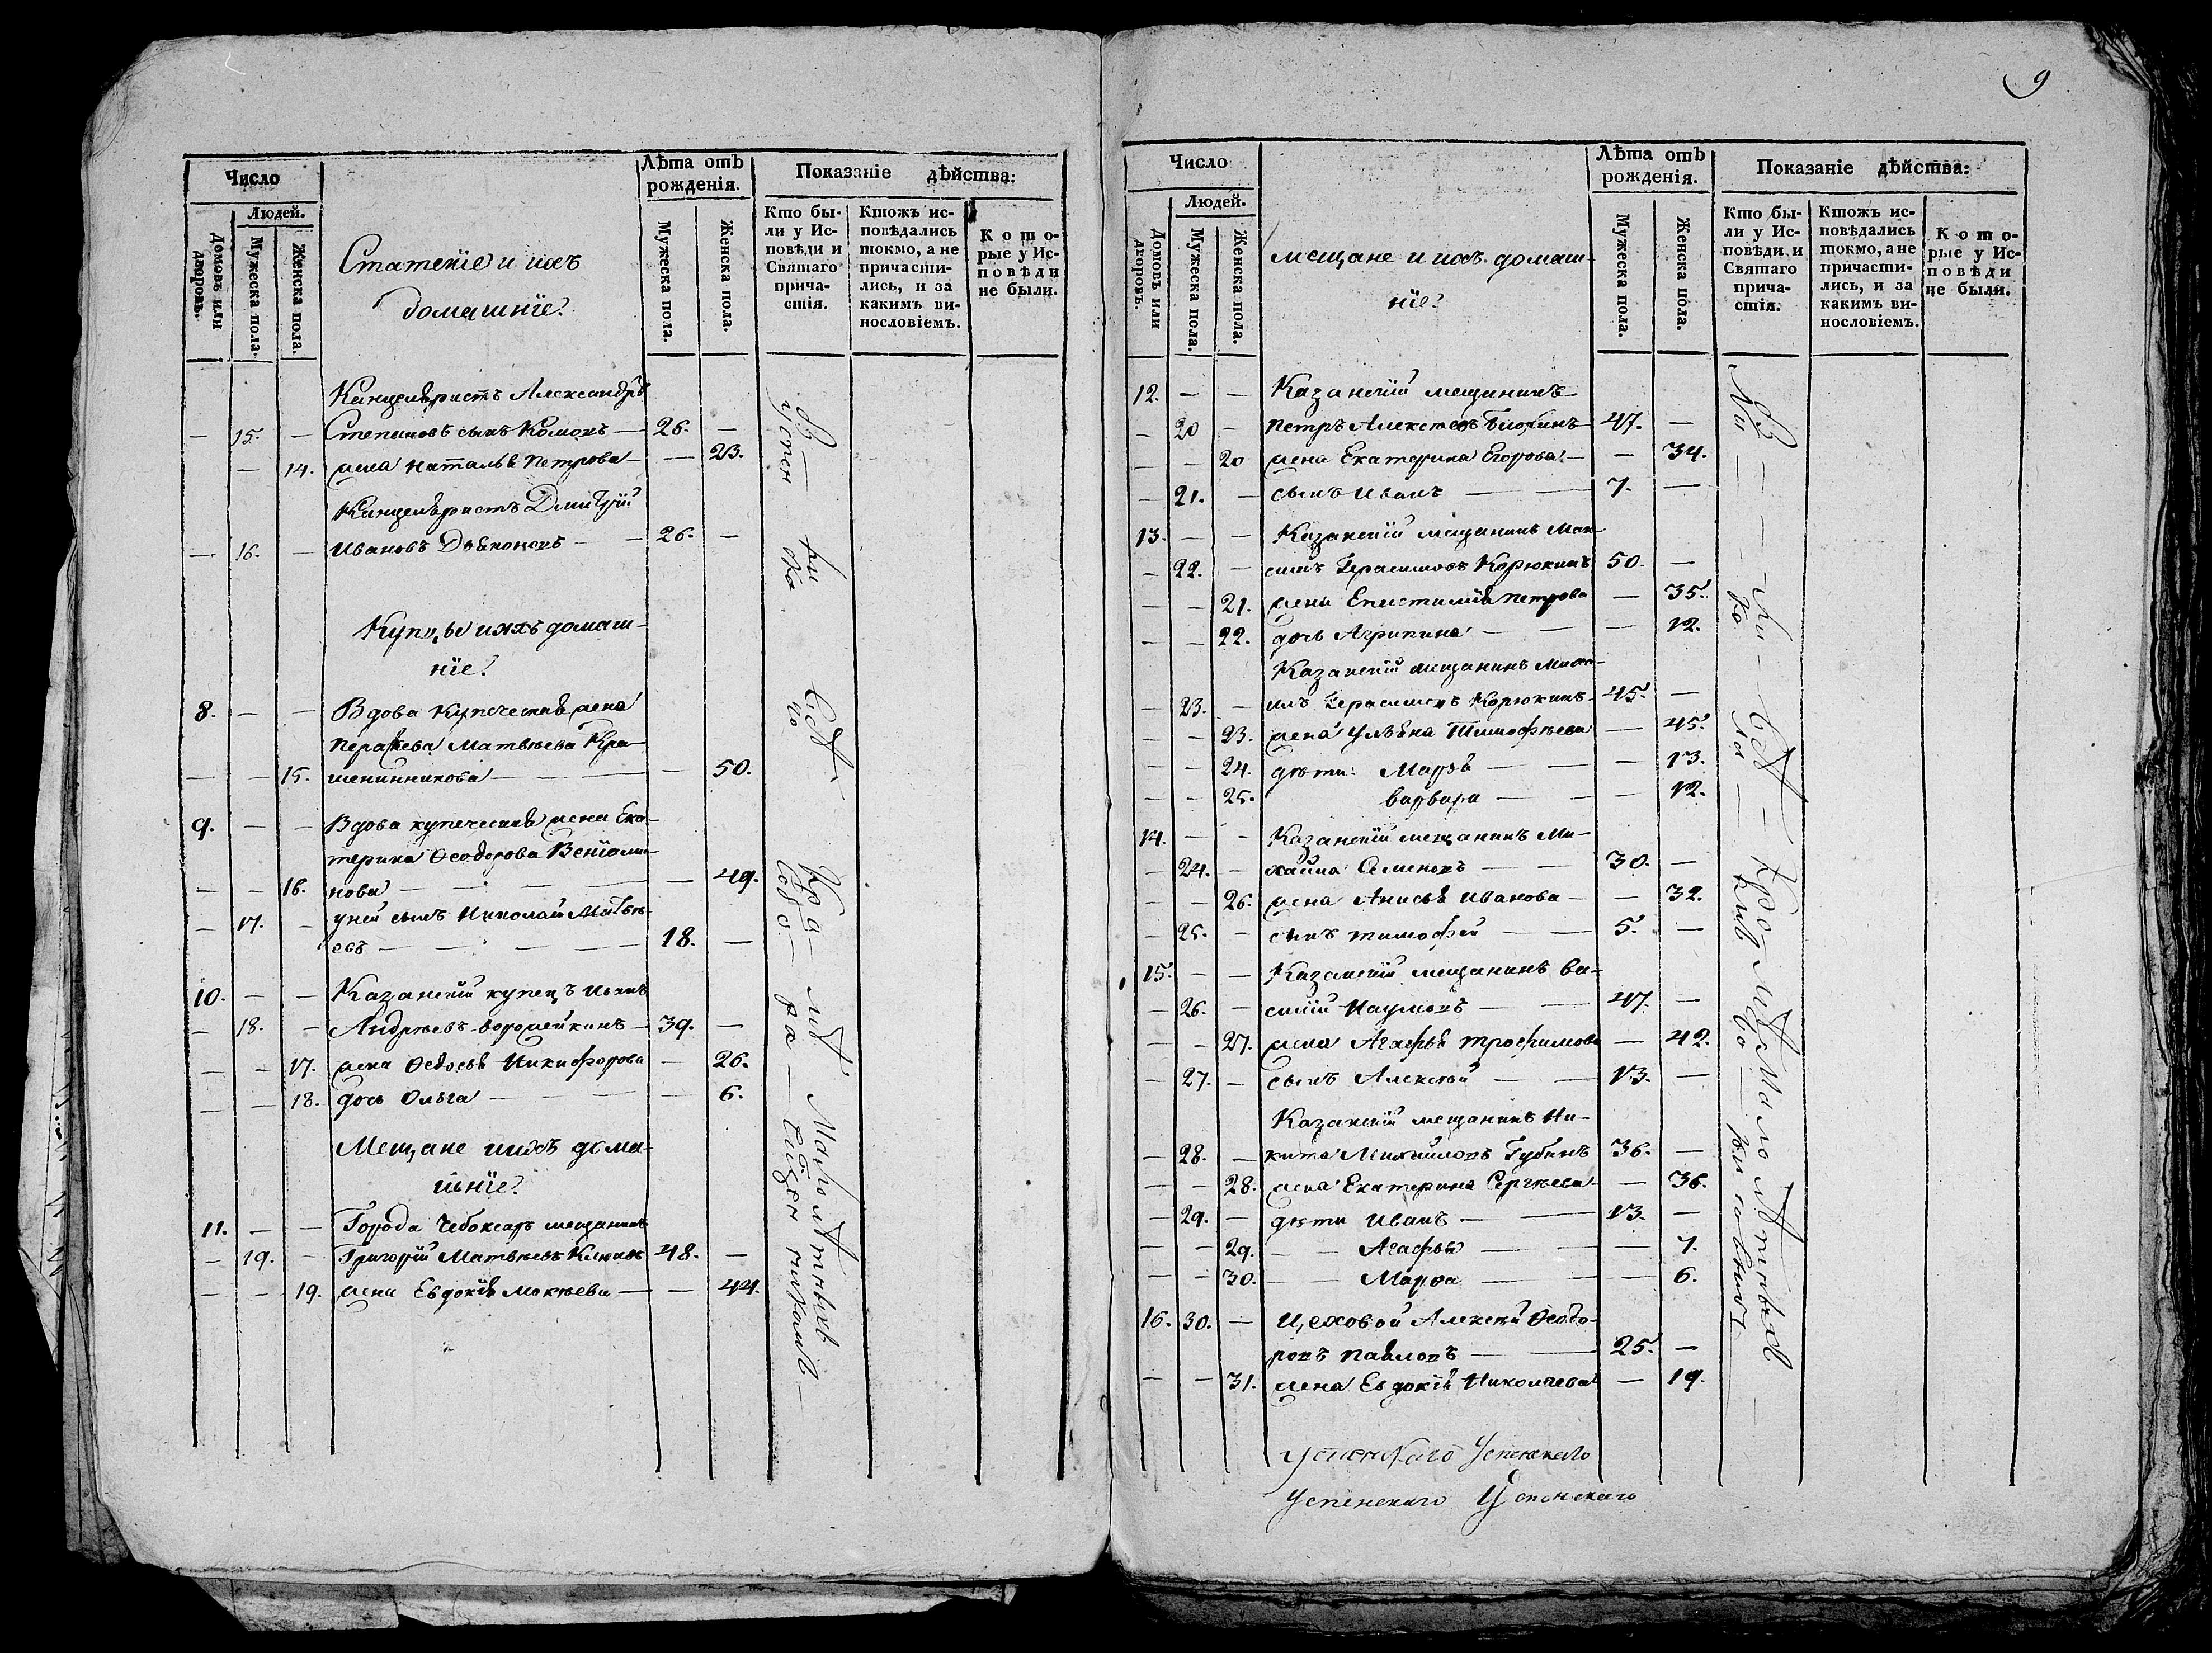 Число
Людей.
Домовъ или дворовъ.
Мужеска пола.
Женска пола.
Статскіе и ихъ
домашніе
Лѣта отъ
рожденія.
Мужеска пола.
Женска пола.
Показаніе дѣйства:
Кто бы-
ли у Ис-
повѣди и
Святаго
прича-
стія.
Ктожъ ис-
повѣдались
токмо, а не
причасти-
лись, и за
какимъ ви-
нословіемъ.
Кото-
рые у Ис-
повѣди
не были.
Канцеляристъ Александръ
— 15. — Степановъ сынъ — 26. —
— 14. жена Наталья Петрова — — 23.
Канцеляристъ Дмитрій
— 16. — Ивановъ — — 26. —
Купцы и ихъ домаш-
ніе
8. — — Вдова купеческая жена
Матвѣева Кра-
— — 15. шенинникова — — — 50.
9. — — Вдова купеческая жена Ека-
терина Ѳеодорова Веніами-
— — 16. нова — — — — 49.
— 17. — у ней сынъ Николай Матвѣ-
евъ — — — — 18. —
10. — — Казанскій купецъ
— 18. — Андреевъ — 39. —
— — 17. жена Ѳедосья Никифорова — 26.
— — 18. дочь Ольга — — — — 6.
Мещане и ихъ дома-
шніе
11. — — Города Чебоксаръ мещанинъ
— 19. — Григорій Матвѣевъ 48. —
— — 19. жена Евдокія — — 44.
9
Число
Людей.
Домовъ или дворовъ.
Мужеска пола.
Женска пола.
мещане и ихъ домаш-
ніе
Лѣта отъ
рожденія.
Мужеска пола.
Женска пола.
Показаніе дѣйства:
Кто бы-
ли у Ис-
повѣди и
Святаго
прича-
стія.
Ктожъ ис-
повѣдались
токмо, а не
причасти-
лись, и за
какимъ ви-
нословіемъ.
Кото-
рые у Ис-
повѣди
не были.
12. — — Казанскій мещанинъ
— 20 — Петръ Алексѣевъ 47. —
— — 20 жена Екатерина Егорова — — 34.
— 21. — сынъ Иванъ — — 7. —
13. — — Казанскій мещанинъ Мак-
— 22. — симъ Герасимовъ Корюкинъ 50. —
— — 21. жена Епистимія Петрова — 35.
— — 22. дочь Агрипина — — — 12.
Казанскій мещанинъ Миха-
— 23. — илъ Герасимовъ Корюкинъ 45. —
— — 23. жена Ульяна Тимофѣева — 45.
— — 24. дѣти: Марья — — 13.
— — 25. Варвара — — — 12.
14. — — Казанскій мещанинъ Ми-
— 24. — хайла Семеновъ — — 30. —
— — 26. жена Анисья Иванова — — 32.
— 25. — сынъ Тимофей — — 5. —
15. — — Казанскій мещанинъ Ва-
— 26. — силій Наумовъ — — 47. —
— — 27. жена Агафья Трофимова — 42.
— 27. — сынъ Алексѣй — — 13. —
Казанскій мещанинъ Ни-
— 28. — кита Михайловъ Губинъ 36. —
— — 28. жена Екатерина Сергѣева — 36.
— 29. — дѣти Иванъ — — 13. —
— — 29. — — Агафья — — — 7.
— — 30. — — Марѳа — — — 6.
16. 30. — Цеховой Алексѣй Ѳеодо-
ровъ Павловъ — — 25. —
— — 31. жена Евдокія Николаева — 19.
Успенскаго Успенскаго
Успенскаго Успенскаго